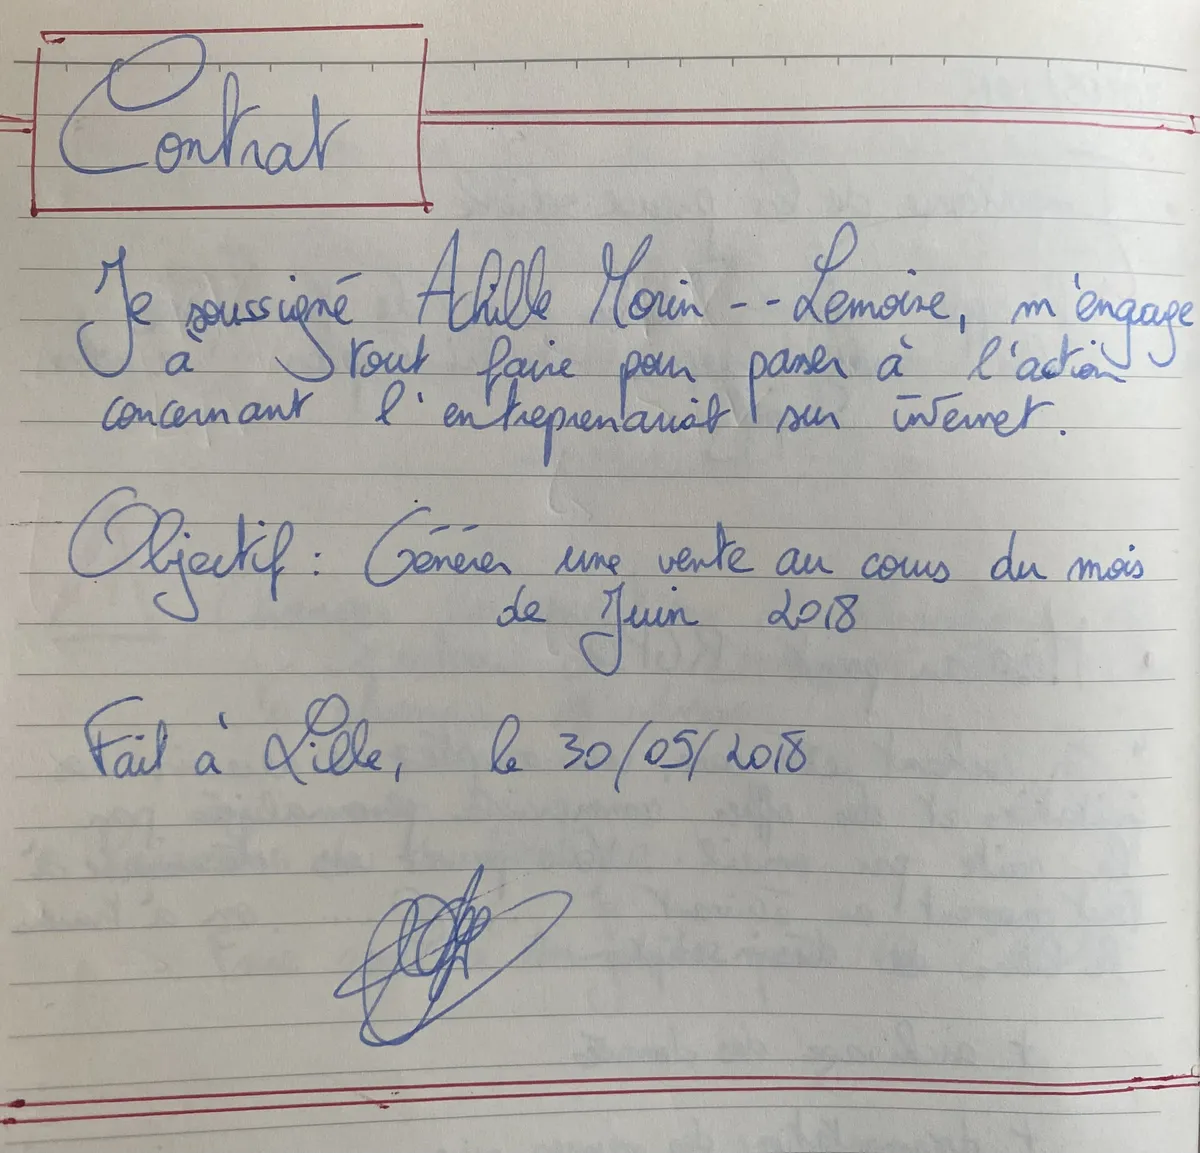 Contrat
Je soussigné Achille Morin -- Lemoire, m'engage
à tout faire pour passer à l'action
concernant l'entreprenariat sur internet.
Objectif : Générer une vente au cours du mois
de Juin 2018
Fait à Lille, le 30/05/2018